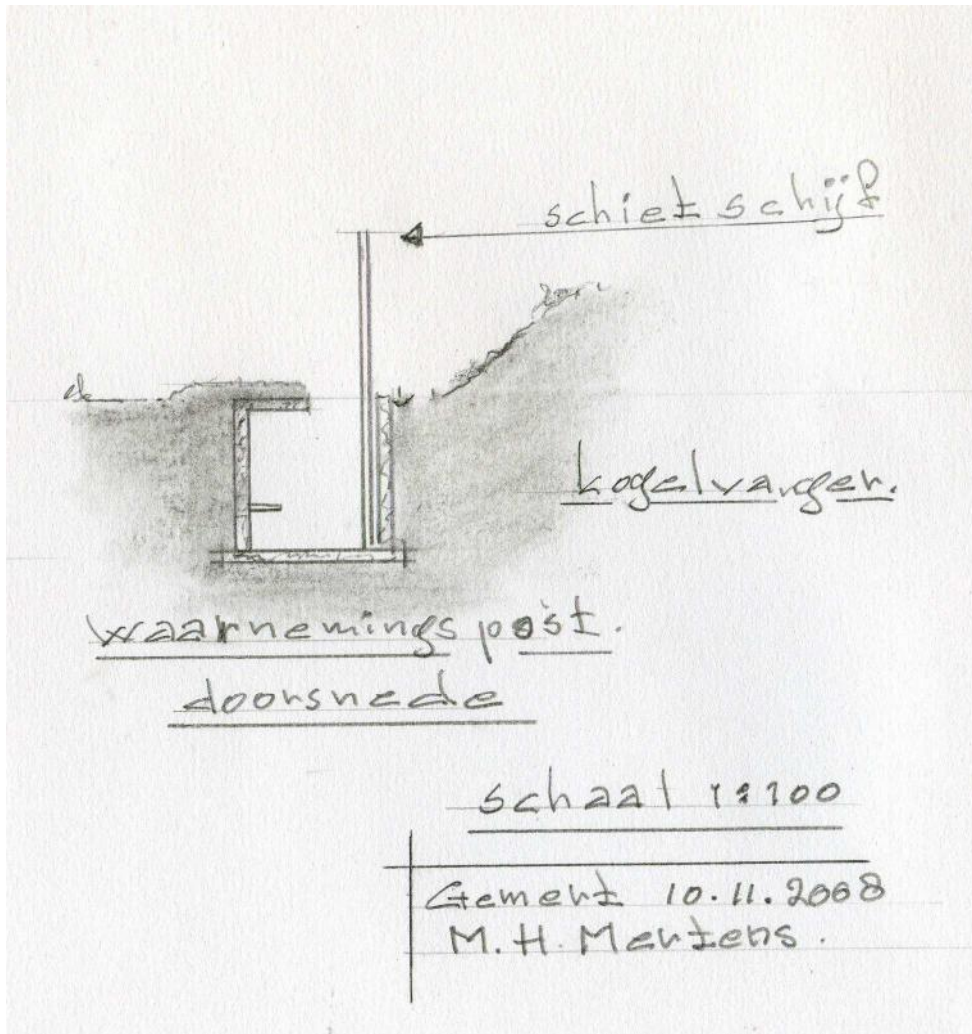 schietschijf
kogelvanger.
waarnemingspost.
doorsnede
schaal 1:100
Gemert 10.11.2008
M.H. Mertens.